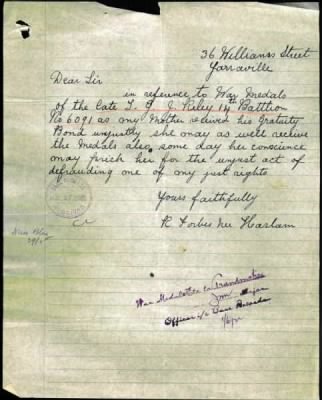 36 Williams Street
Yarraville
Dear Sir
in reference to War Medals
of the late T. G. J. Riley 14th Battlion
No 6091 as my Mother recived his Gratuity
Bond unjustly she may as well receive
the Medals also, some day her conscience
may prich her for the unjust act of
defrauding one of my just rights
Yours faithfully
R Forbes nee Hasham
War Medals &c to Grandmother
Major
Officer i/c Base Records